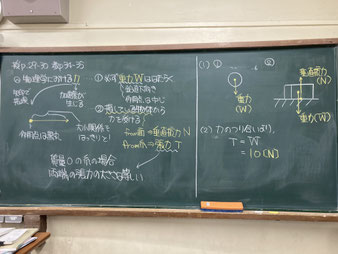 教p.29-30 参p.34-35
◎物理学における力
矢印で表現
加速度が生じる
作用点は黒丸
大小関係をはっきりと!
① 必ず重力Wははたらく
鉛直下向き
作用点は中心
② 接している物体からも力を受ける
from面⇒垂直抗力N
from糸⇒張力T
質量0の糸の場合
両端の張力の大きさは等しい
(1) ①
重力(W)
②
垂直抗力(N)
重力(W)
(2) 力のつり合いより、
T = W
= 10 (N)